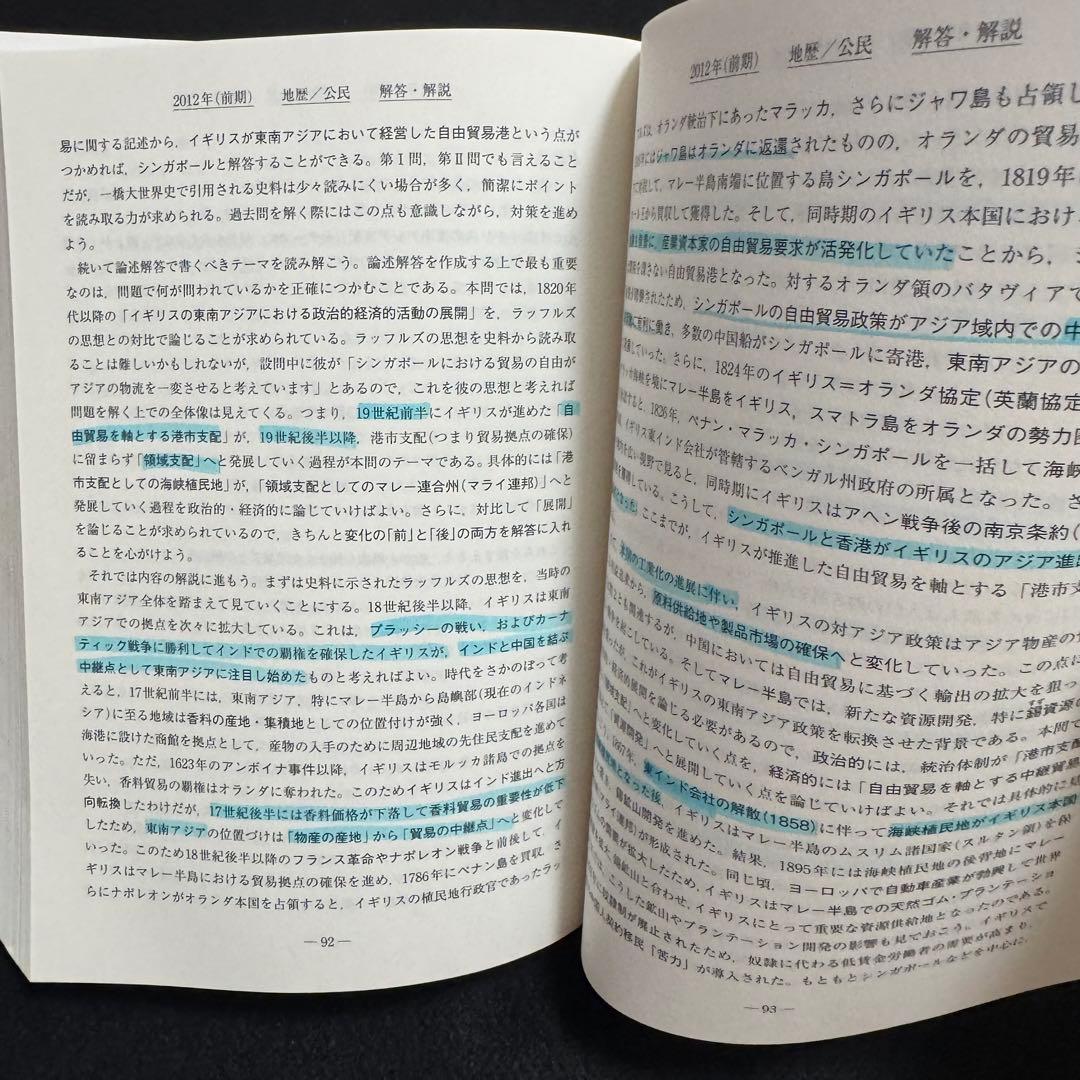 2012年(前期) 地歴/公民 解答・解説
易に関する記述から，イギリスが東南アジアにおいて経営した自由貿易港という点が
つかめれば，シンガポールと解答することができる。第Ⅰ問，第Ⅱ問でも言えること
だが，一橋大世界史で引用される史料は少々読みにくい場合が多く，簡潔にポイント
を読み取る力が求められる。過去問を解く際にはこの点も意識しながら，対策を進め
よう。
続いて論述解答で書くべきテーマを読み解こう。論述解答を作成する上で最も重要
なのは，問題で何が問われているかを正確につかむことである。本問では，1820年
代以降の「イギリスの東南アジアにおける政治的経済的活動の展開」を，ラッフルズ
の思想との対比で論じることが求められている。ラッフルズの思想を史料から読み取
ることは難しいかもしれないが，設問中に彼が「シンガポールにおける貿易の自由が
アジアの物流を一変させると考えています」とあるので，これを彼の思想と考えれば
問題を解く上での全体像は見えてくる。つまり，19世紀前半にイギリスが進めた「自
由貿易を軸とする港市支配」が，19世紀後半以降，港市支配(つまり貿易拠点の確保)
に留まらず「領域支配」へと発展していく過程が本問のテーマである。具体的には「港
市支配としての海峡植民地」が，「領域支配としてのマレー連合州(マライ連邦)」へと
発展していく過程を政治的・経済的に論じていけばよい。さらに，対比して「展開」
を論じることが求められているので，きちんと変化の「前」と「後」の両方を解答に入れ
ることを心がけよう。
それでは内容の解説に進もう。まずは史料に示されたラッフルズの思想を，当時の
東南アジア全体を踏まえて見ていくことにする。18世紀後半以降，イギリスは東南
アジアでの拠点を次々に拡大している。これは，プラッシーの戦い，およびカーナ
ティック戦争に勝利してインドでの覇権を確保したイギリスが，インドと中国を結ぶ
中継点として東南アジアに注目し始めたものと考えればよい。時代をさかのぼって考
えると，17世紀前半には，東南アジア，特にマレー半島から島嶼部(現在のインドネ
シア)に至る地域は香料の産地・集積地としての位置付けが強く，ヨーロッパ各国は
海港に設けた商館を拠点として，産物の入手のために周辺地域の先住民支配を進めて
いった。ただ，1623年のアンボイナ事件以降，イギリスはモルッカ諸島での拠点を
失い，香料貿易の覇権はオランダに奪われた。このためイギリスはインド進出へと方
向転換したわけだが，17世紀後半には香料価格が下落して香料貿易の重要性が低下
したため，東南アジアの位置づけは「物産の産地」から「貿易の中継点」へと変化して
いった。このため18世紀後半以降のフランス革命やナポレオン戦争と前後して，イ
ギリスはマレー半島における貿易拠点の確保を進め，1786年にペナン島を買収，さ
らにナポレオンがオランダ本国を占領すると，イギリスの植民地行政官であったラッ
―92―
2012年(前期) 地歴/公民 解答・解説
オランダ統治下にあったマラッカ，さらにジャワ島も占領し
にはジャワ島はオランダに返還されたものの，オランダの貿易
して，マレー半島南端に位置する島シンガポールを，1819年に
から買収して獲得した。そして，同時期のイギリス本国におけ
に，産業資本家の自由貿易要求が活発化していたことから，
さない自由貿易港となった。対するオランダ領のバタヴィアで
されたため，シンガポールの自由貿易政策がアジア域内での中
に有利に働き，多数の中国船がシンガポールに寄港，東南アジアの
していった。さらに，1824年のイギリス＝オランダ協定(英蘭協定
海峡を境にマレー半島をイギリス，スマトラ島をオランダの勢力圏
すると，1826年，ペナン・マラッカ・シンガポールを一括して海峡
イギリス東インド会社が管轄するベンガル州政府の所属となった。さ
広い視野で見ると，同時期にイギリスはアヘン戦争後の南京条約(
している。こうして，シンガポールと香港がイギリスのアジア進出
なった。ここまでが，イギリスが推進した自由貿易を軸とする「港市支
の工業化の進展に伴い，イギリスの対アジア政策はアジア物産の
から，原料供給地や製品市場の確保へと変化していった。この点に
とも関連するが，中国においては自由貿易に基づく輸出の拡大を狙っ
を起こしている。そしてマレー半島では，新たな資源開発，特に錫資源の
が，これがイギリスの東南アジア政策を転換させた背景である。本問で
経済的展開を論じる必要があるので，政治的には，統治体制が「港市支配
支配」へと変化していく点を，経済的には「自由貿易を軸とする中継貿易
「資源開発」へと展開していく点を論じていけばよい。それでは具体的に見
となった後，東インド会社の解散(1858)に伴って海峡植民地がイギリス本国
1867年，イギリスはマレー半島のムスリム諸国家(スルタン領)を保
錫鉱山開発を進めた。結果，1895年には海峡植民地の後背地にマレー
が形成された。同じ頃，ヨーロッパで自動車産業が勃興して世界
が拡大したため，イギリスはマレー半島での天然ゴム・プランテーショ
錫鉱山と合わせ，イギリスにとって重要な資源供給地となったのである。
こうした鉱山やプランテーション開発の影響も見ておこう。イギリスで
奴隷制が廃止されたため，奴隷に代わる低賃金労働者の需要が高まり，
契約移民「苦力」が導入された。もともとシンガポールなどを中心に，
―93―